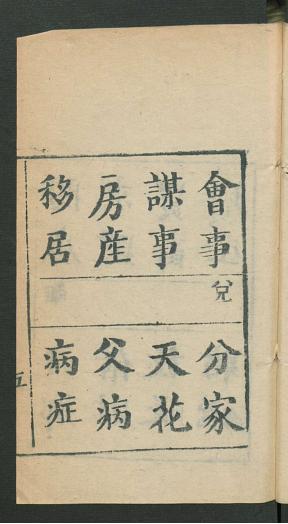 會事
謀事
房產
移居
兌
分家
天花
父病
病症
五